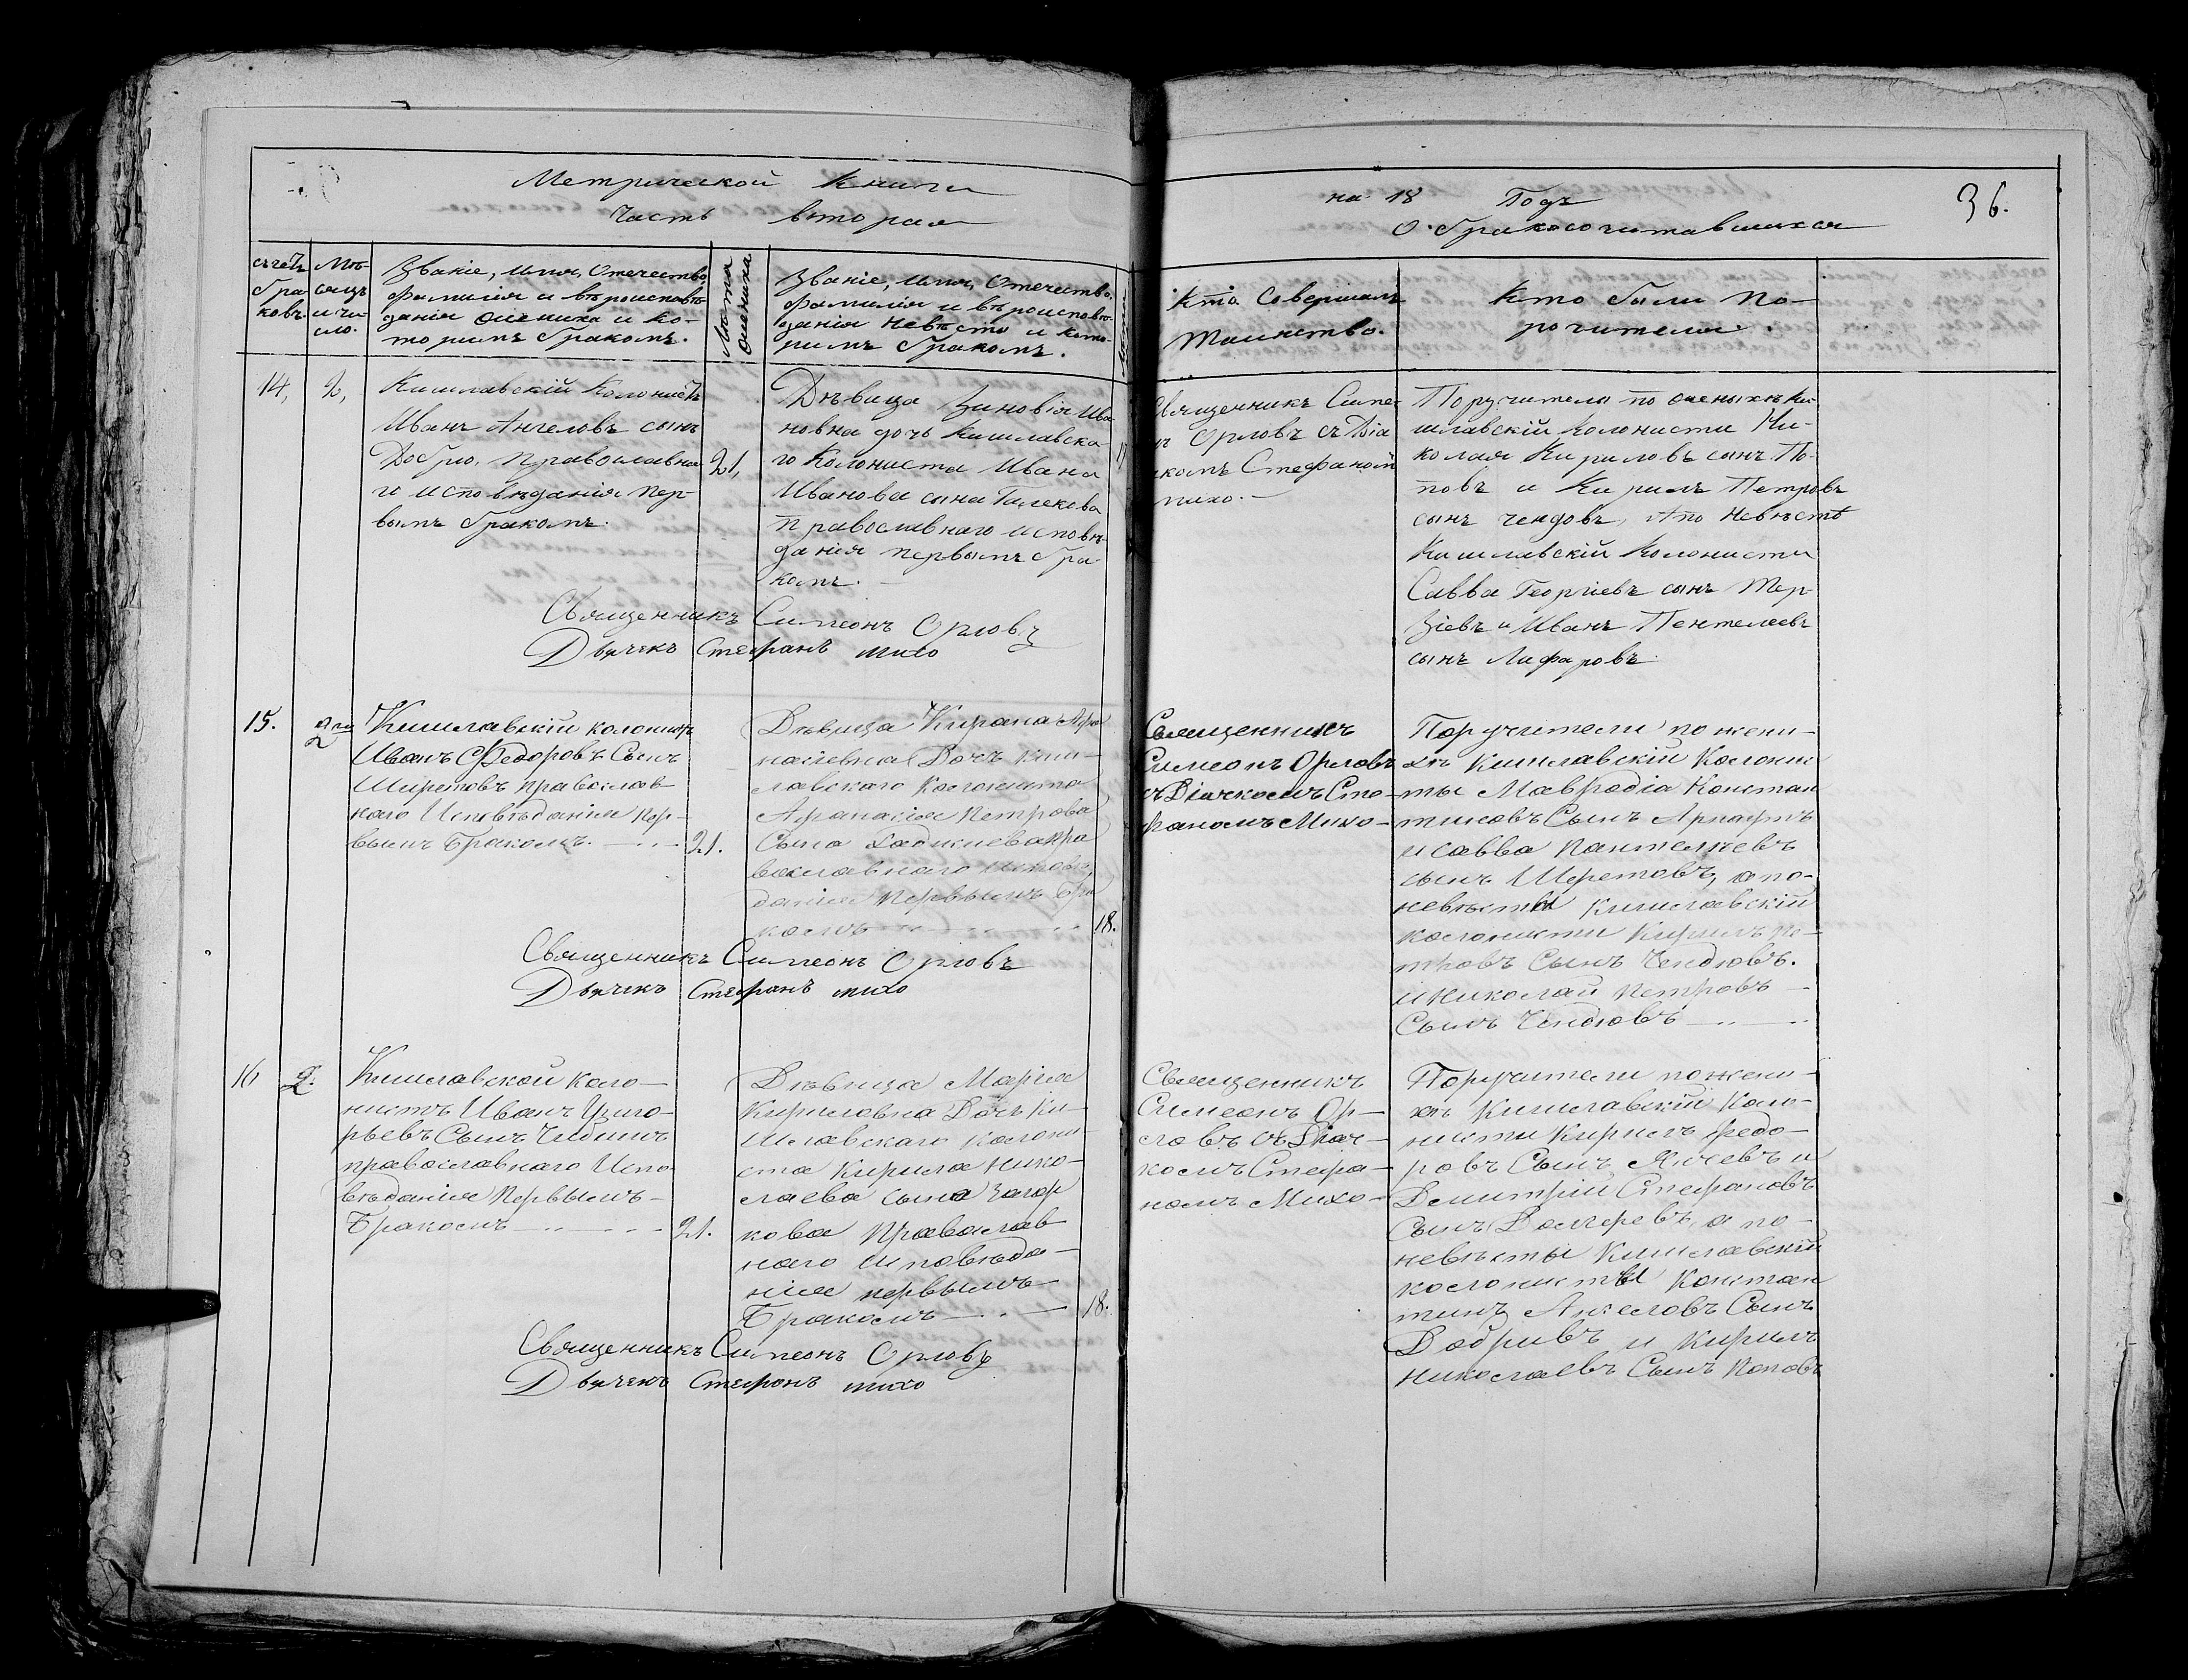 Метрической Книги
Часть вторая
на 18 Годъ
О бракосочитавшихся
36.
счетъ
бра-
ковъ.
Мѣ-
сяцъ
и чи-
сло.
Званіе, имя, Отечество,
фамилія и вѣроисповѣ-
данія жениха и ко-
торимъ бракомъ.
Лѣта
жениха.
Званіе, имя, отечество,
фамилія и вѣроисповѣ-
данія невѣсти и кото-
римъ бракомъ.
Кто Совершалъ
таинство.
Кто были по-
ручители.
14,
2,
Кишлавскій Колонистъ
Иванъ Ангеловъ сынъ
Добрю, православна
го исповѣданія пер-
вымъ бракомъ.
21,
Дѣвица Зиновія Ива
новна дочь Кишлавска
го Колониста Ивана
Иванова сына
православнаго исповѣ-
данія первымъ бра-
комъ.
Священникъ Симе-
нъ Орловъ съ Дія
комъ Стефаном
михо.
Поручители по женихѣ Ки-
шлавскій колонисти Ни-
колая Кириловъ сынъ По-
повъ и Кирилъ Петровъ
сынъ чендовъ, А по невѣстѣ
Кишлавскій Колонисти
Савва Георгіевъ сынъ Тер-
зіевъ и Иванъ Пентелеевъ
сынъ Лифаровъ.
Священникъ Симеонъ Орловъ
Дьячекъ Стефанъ михо
15.
2го
Кишлавскій колонистъ
Иванъ Федоровъ Сынъ
Ширетовъ православ-
наго Исповѣданія пер-
вымъ Бракомъ.
21.
Дѣвица Кирана Афа
насіевна Дочь Киш-
лавскаго Колониста
Афанасія Петрова
Сына пра
вославнаго исповѣ
данія Первымъ Бра
комъ
18.
Священникъ
Симеонъ Орловъ
съ Діячкомъ Сте-
фаномъ Михо-
Поручители по жени-
хѣ Кишлавскій Колонис
ты Мавродіа Констан
тиновъ Сынъ Арнаутъ
и Савва Пантелѣевъ
сынъ Шеретовъ, а по-
невѣсты Кишлавскій
колонисти Кирилъ Пе-
тровъ Сынъ Чендювъ.
и Николай Петровъ
Сынъ Чендювъ
Священникъ Симеонъ Орловъ
Дьячекъ Стефанъ михо
16
2.
Кишлавской Коло-
нистъ Иванъ
рьевъ Сынъ
православнаго Испо
вѣданія Первымъ
Бракомъ
21.
Дѣвица Марія
Кириловна Дочь Ки-
шлавскаго колони-
ста Кирила Нико-
лаева сына Загор
кова Православ
наго исповѣда-
нія первымъ
Бракомъ
18.
Священникъ
Симеонъ Ор-
ловъ съ Діач-
комъ Стефа-
номъ Михо-
Поручители по жени-
хѣ Кишлавскій Коло-
нисти Кирилъ Федо-
ровъ Сынъ и
Дмитрій Стефановъ
Сынъ а по-
невѣсты Кишлавскій
колонисты Констан
тинъ Ангеловъ Сынъ
Добривъ и Кирилъ
Николаевъ Сынъ Поповъ
Священникъ Симеонъ Орловъ
Дьячекъ Стефанъ михо